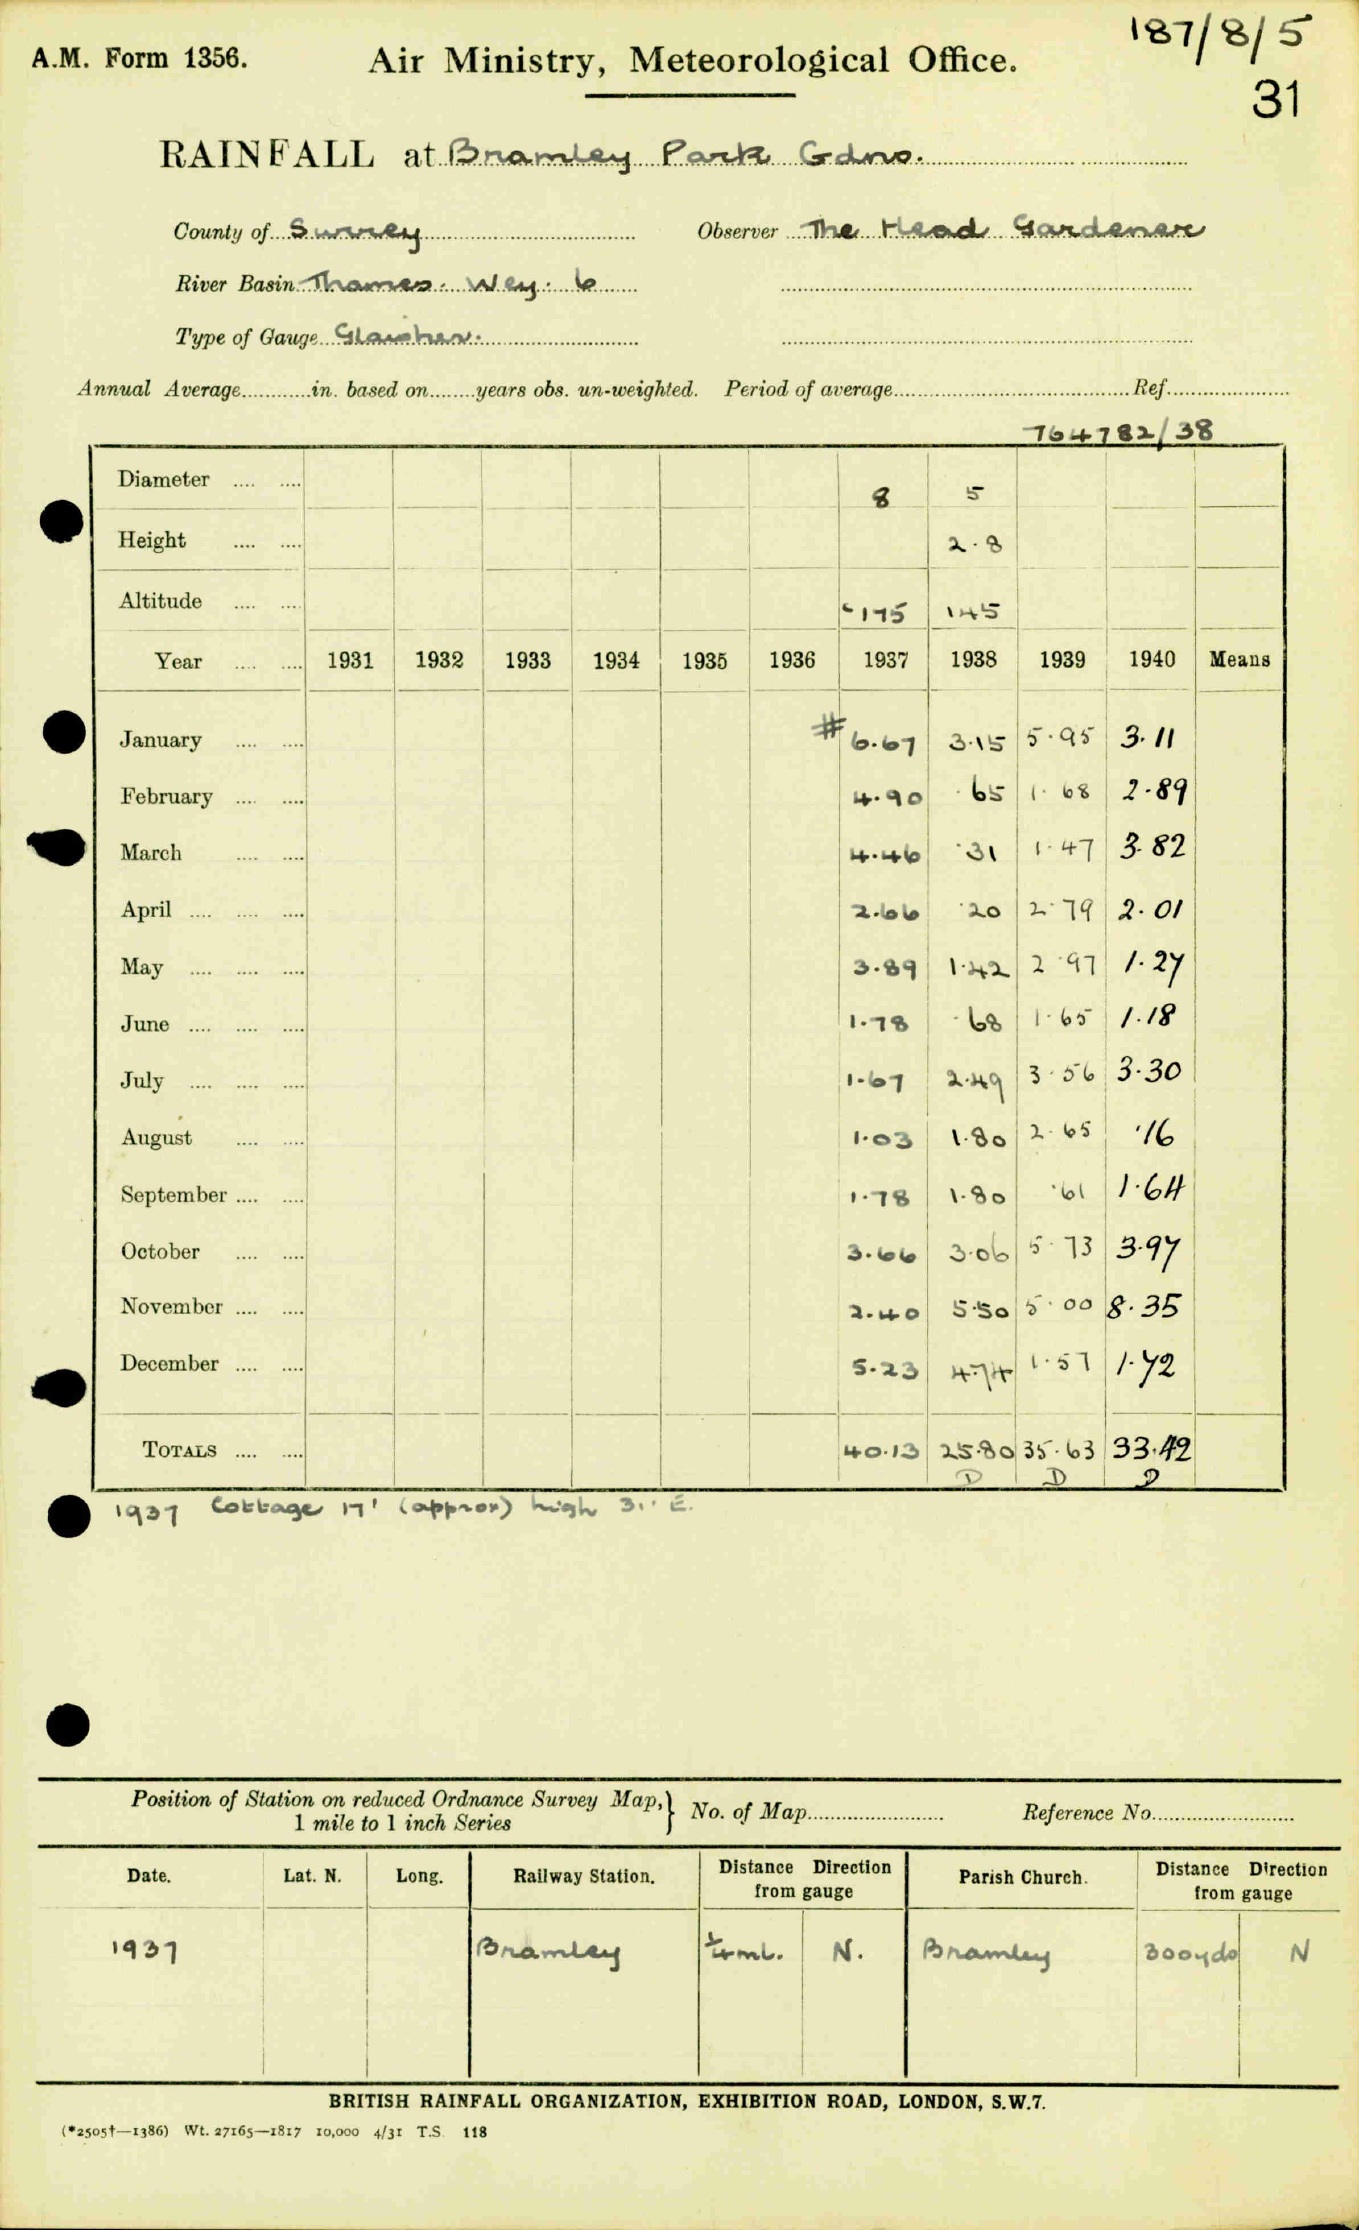 187/8/5
A.M. Form 1356. Air Ministry, Meteorological Office.
31
RAINFALL at Bramley Park Gdns.
County of Surrey Observer The Head Gardener
River Basin Thames. Wey. 6
Type of Gauge Glaisher.
Annual Average in. based on years obs. un-weighted. Period of average Ref.
764782/38
Diameter 8 5
Height 2.8
Altitude 175 145
Year 1931 1932 1933 1934 1935 1936 1937 1938 1939 1940 Means
January # 6.67 3.15 5.95 3.11
February 4.90 .65 1.68 2.89
March 4.46 .31 1.47 3.82
April 2.66 .20 2.79 2.01
May 3.89 1.42 2.97 1.27
June 1.78 .68 1.65 1.18
July 1.67 2.49 3.56 3.30
August 1.03 1.80 2.65 .16
September 1.78 1.80 .61 1.64
October 3.66 3.06 5.73 3.97
November 2.40 5.50 5.00 8.35
December 5.23 4.74 1.57 1.72
TOTALS 40.13 25.80 35.63 33.42
D D D
1937 Cottage 17' (approx) high 31' E.
Position of Station on reduced Ordnance Survey Map, } No. of Map Reference No.
1 mile to 1 inch Series
Date. Lat. N. Long. Railway Station. Distance Direction from gauge Parish Church. Distance Direction from gauge
1937 Bramley ¼ ml. N. Bramley 300 yds N
BRITISH RAINFALL ORGANIZATION, EXHIBITION ROAD, LONDON, S.W.7.
(*2505†—1386) Wt. 27165—1817 10,000 4/31 T.S. 118